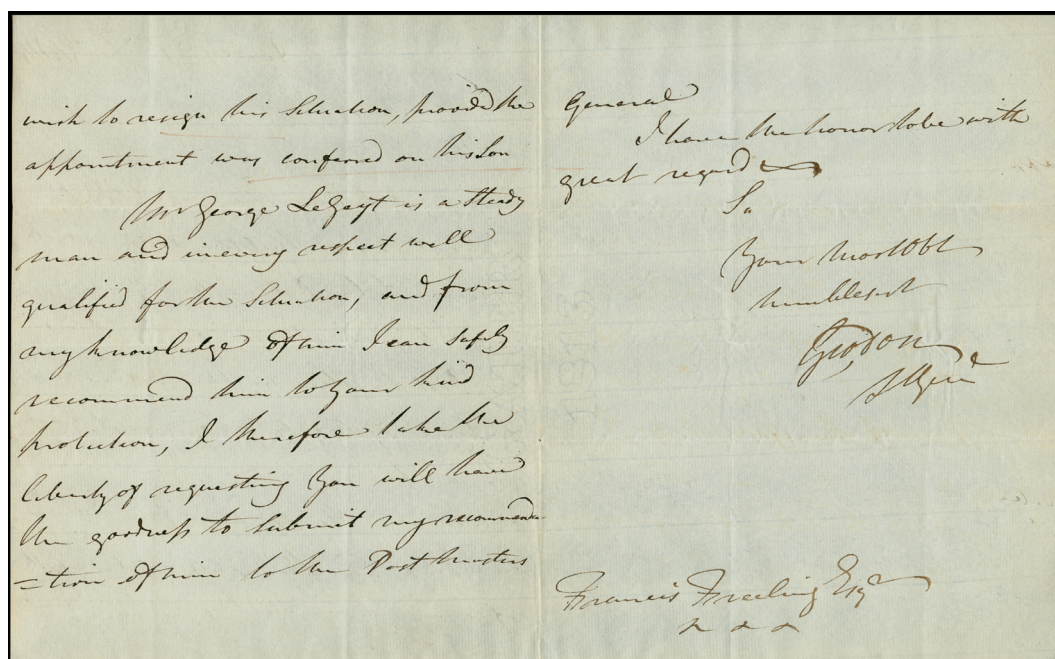 wish to resign his Situation, provided the
appointment was conferred on his Son
Mr George LeGeyt is a Steady
man and in every respect well
qualified for the Situation, and from
my knowledge of him I can safely
recommend him to your kind
protection, I therefore take the
liberty of requesting you will have
the goodness to submit my recommenda
=tion of him to the Post Masters
General
I have the honor to be with
great regard
Sir
Your most Obt
humble Sert
Geo Don
Lt Genl
Francis Freeling Esqr